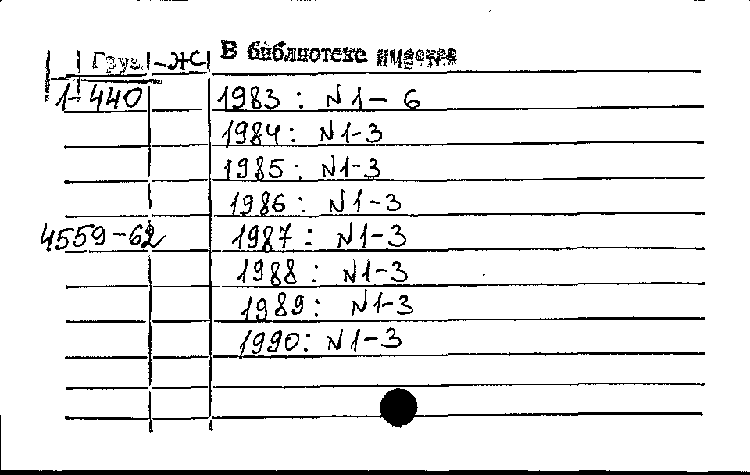 Груз - ЖС В библиотеке имеется
1-440 1983: N1-6
1984: N1-3
1985: N1-3
1986: N1-3
4559-62 1987: N1-3
1988: N1-3
1989: N1-3
1990: N1-3